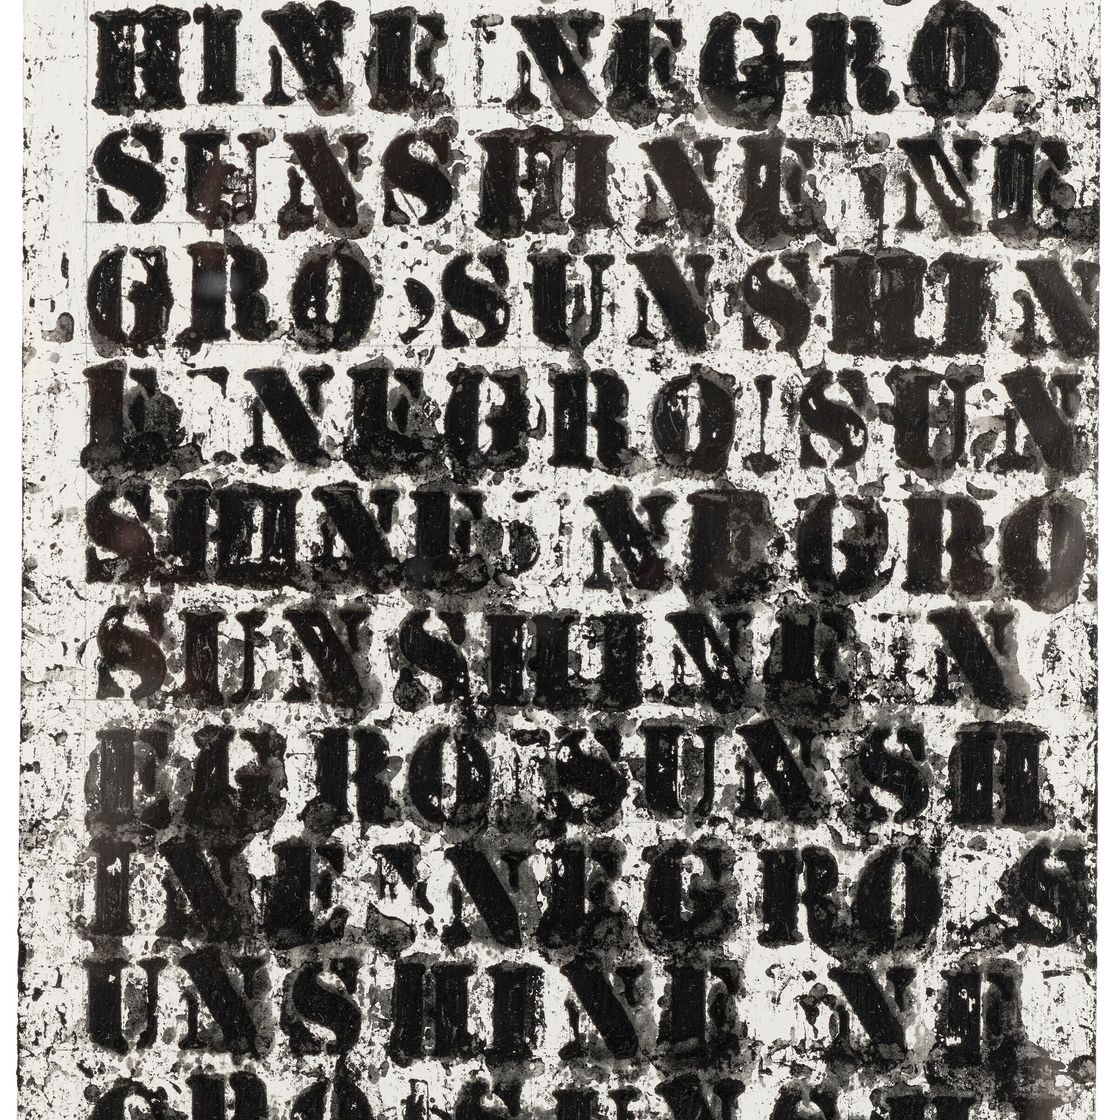 HINE NEGRO
SUNSHINE NE
GRO SUNSHIN
E NEGRO SUN
SHINE NEGRO
SUNSHINE N
EGRO SUNSH
INE NEGRO S
UNSHINE NE
GRO SUNSH